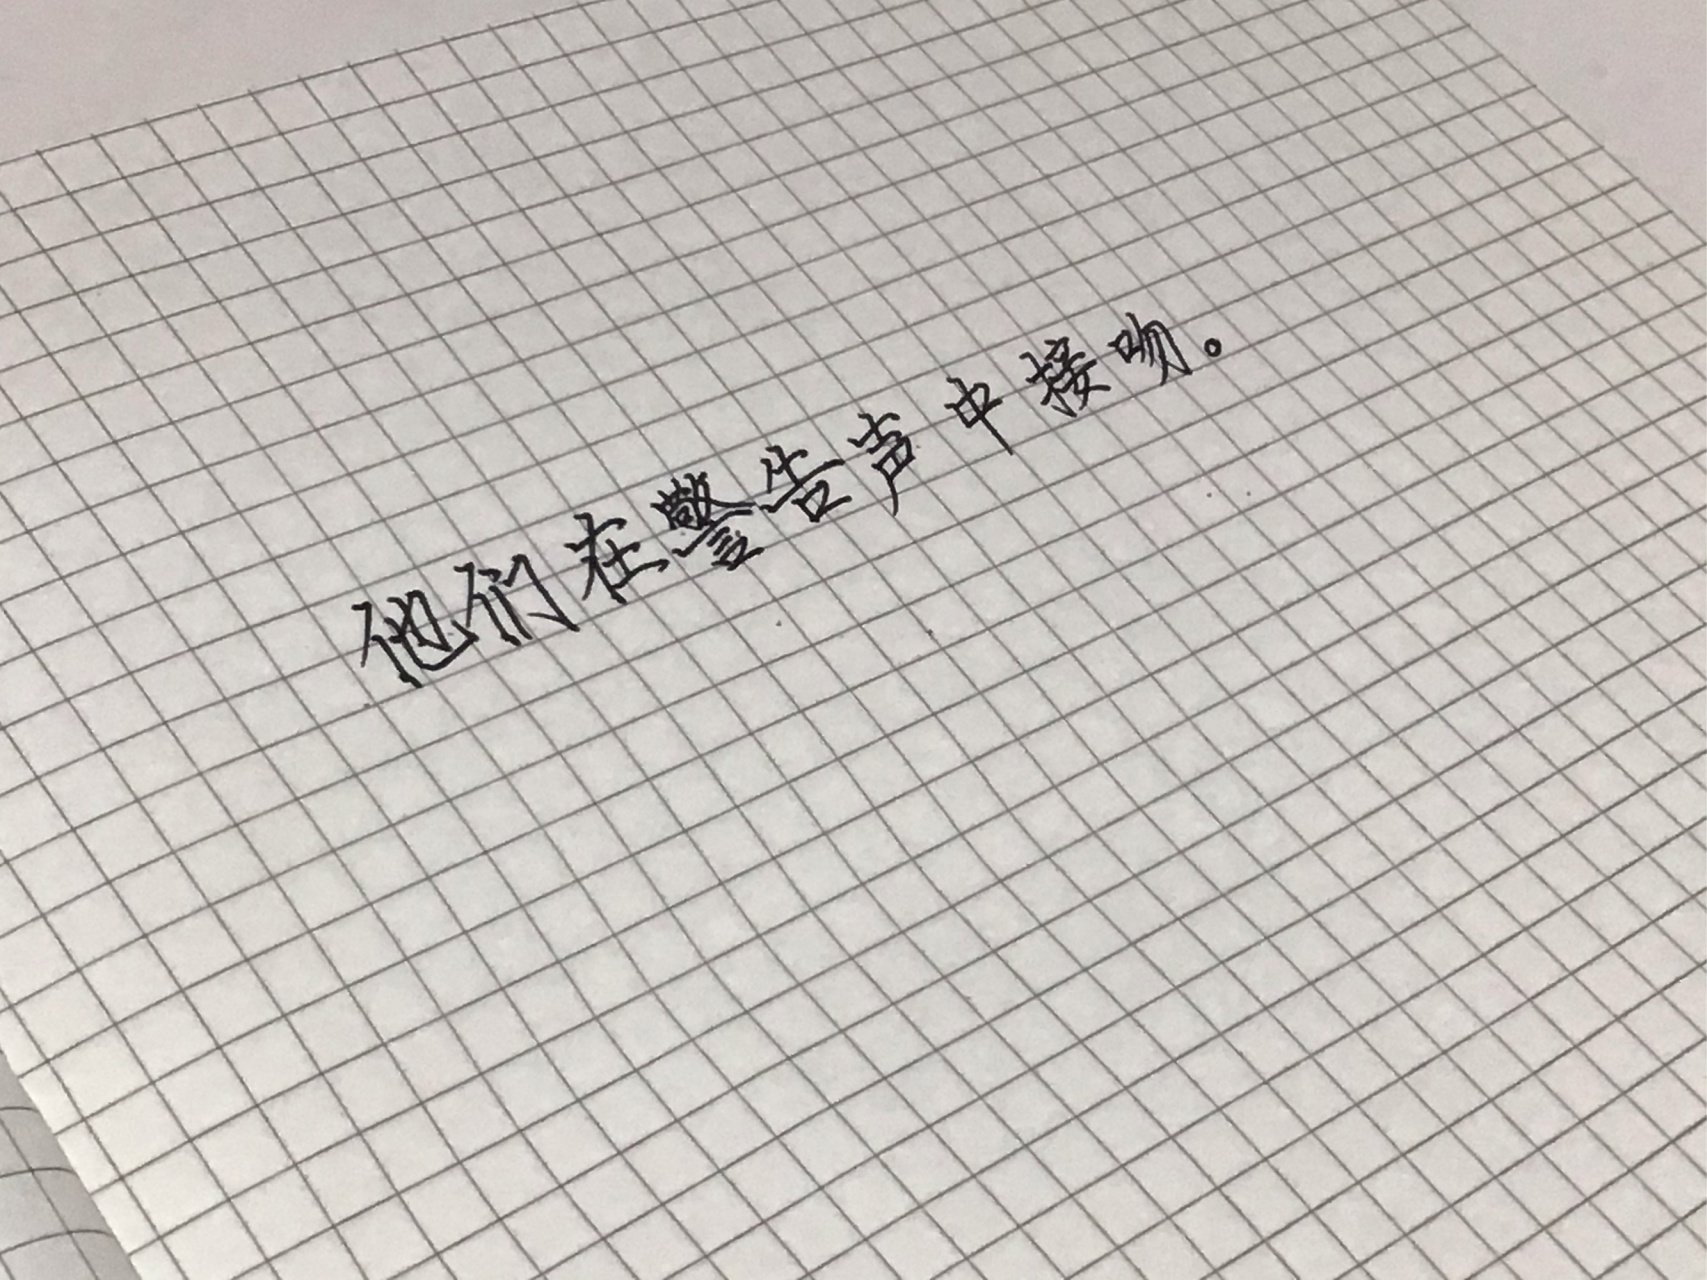 他们在警告声中接吻。